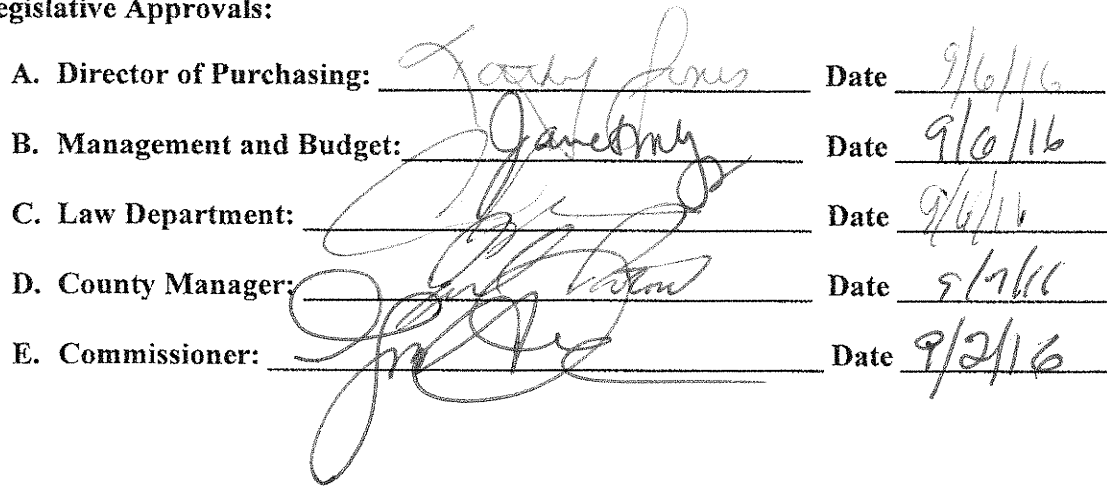 egislative Approvals:
A. Director of Purchasing: Kathy Jones Date 9/6/16
B. Management and Budget: Date 9/6/16
C. Law Department: Date 9/6/16
D. County Manager: Date 9/7/16
E. Commissioner: Date 9/2/16